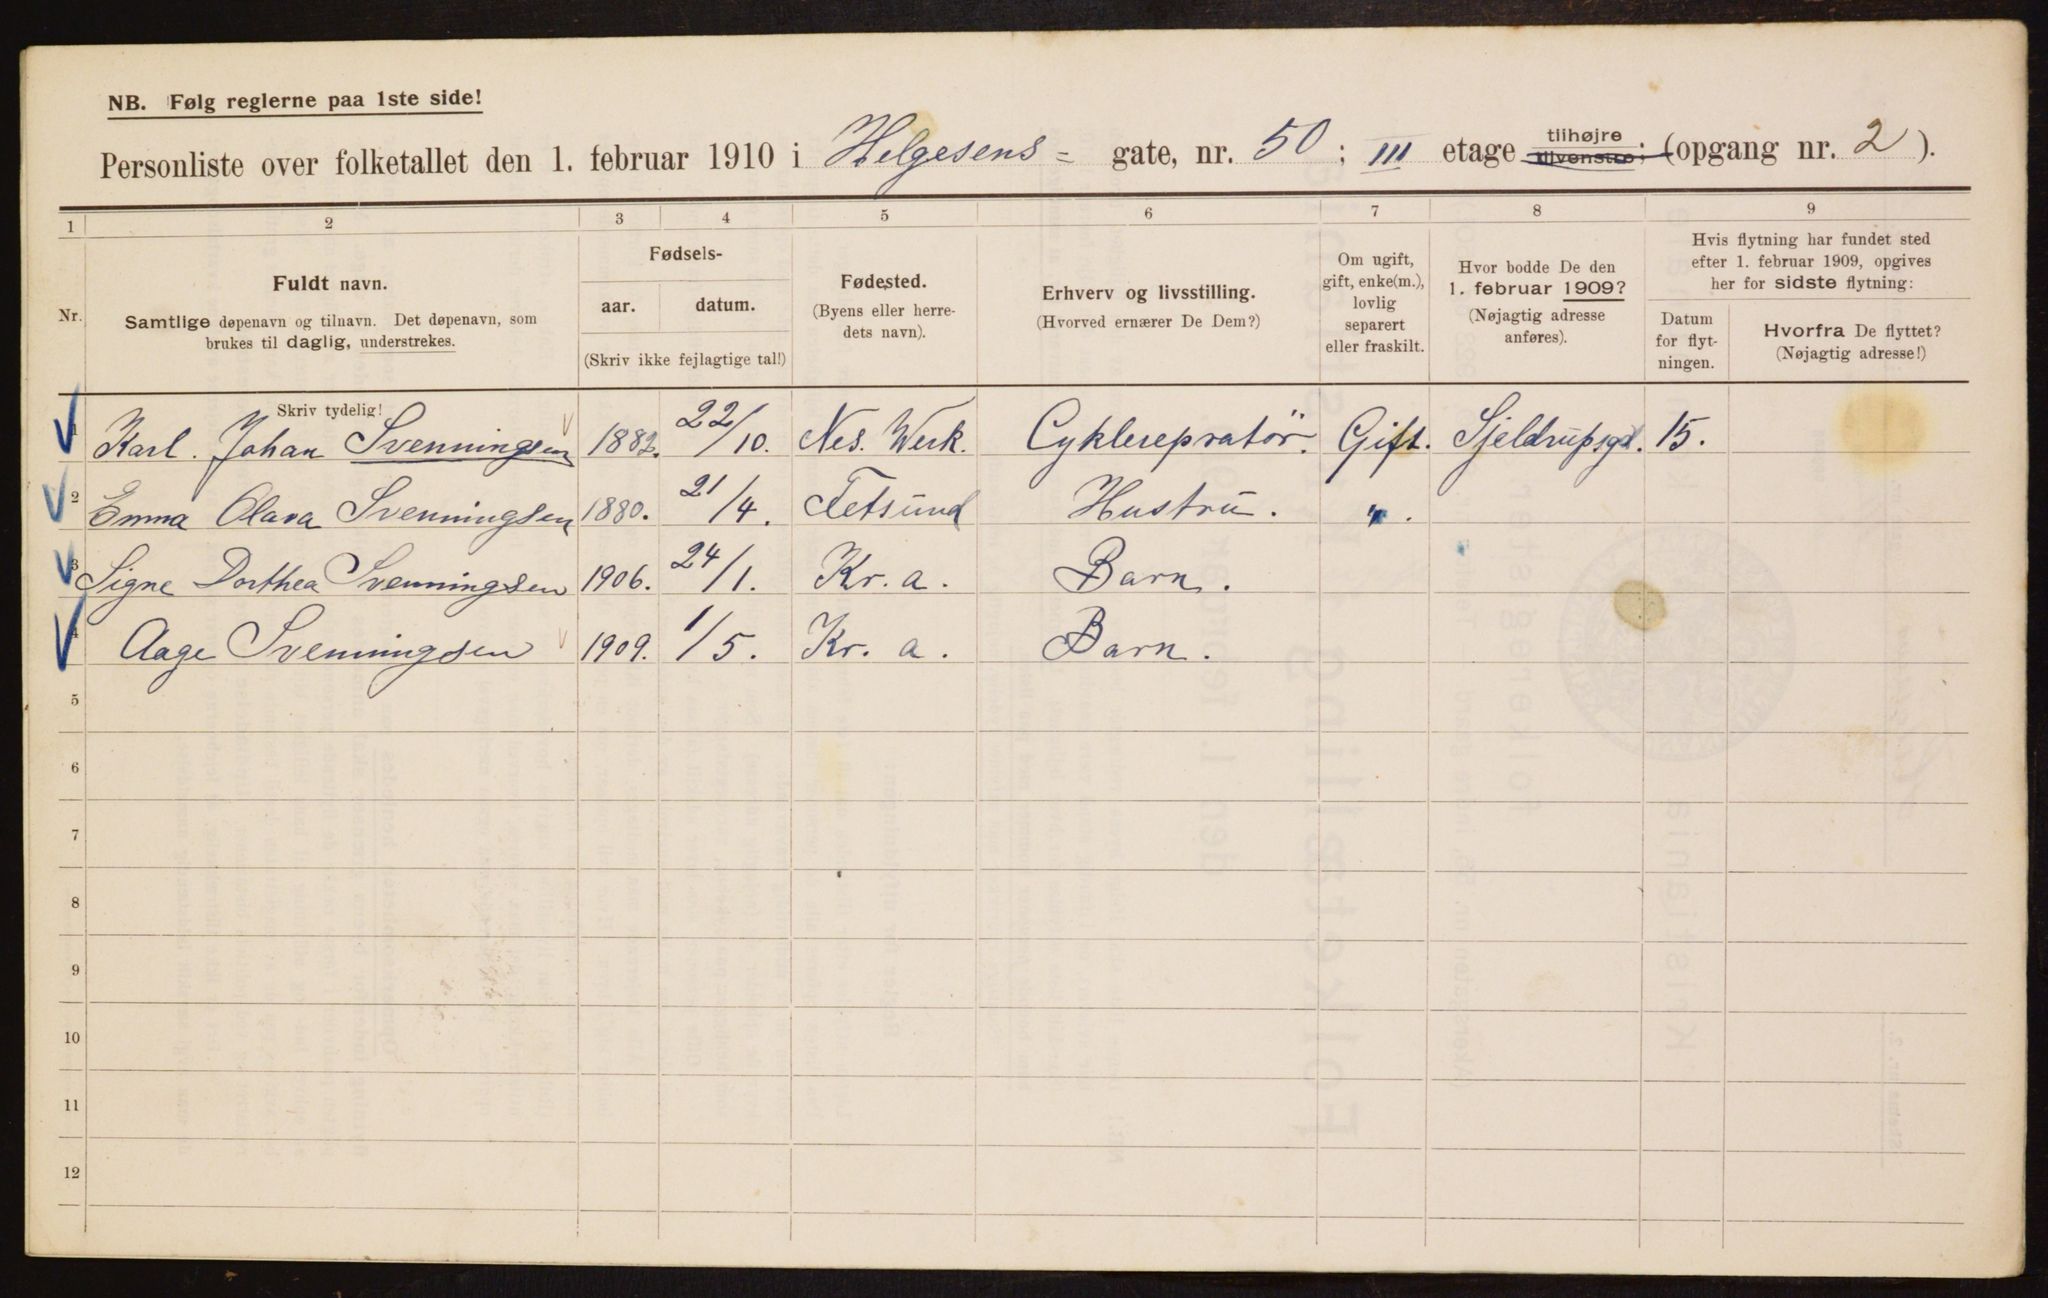 NB. Følg reglerne paa 1ste side!
Personliste over folketallet den 1. februar 1910 i Helgesens = gate, nr. 50 ; III etage tilhøjre tilvenstre; (opgang nr. 2 ).
1 2 3 4 5 6 7 8 9
Nr.
Fuldt navn.
Samtlige døpenavn og tilnavn. Det døpenavn, som
brukes til daglig, understrekes.
Fødsels-
aar. datum.
(Skriv ikke fejlagtige tal!)
Fødested.
(Byens eller herre-
dets navn).
Erhverv og livsstilling.
(Hvorved ernærer De Dem?)
Om ugift,
gift, enke(m.),
lovlig
separert
eller fraskilt.
Hvor bodde De den
1. februar 1909?
(Nøjagtig adresse
anføres).
Hvis flytning har fundet sted
efter 1. februar 1909, opgives
her for sidste flytning:
Datum
for flyt-
ningen.
Hvorfra De flyttet?
(Nøjagtig adresse!)
Skriv tydelig!
1 Karl. Johan Svenningsen 1882. 22/10. Nes. Werk. Cyklerepratör. Gift. Sjeldrupsgd. 15.
2 Emma Olava Svenningsen 1880. 21/4. Fetsund Hustru. " .
3 Signe Dorthea Svenningsen 1906. 24/1. Kr. a. Barn.
4 Aage Svenningsen 1909. 1/5. Kr. a. Barn.
5
6
7
8
9
10
11
12